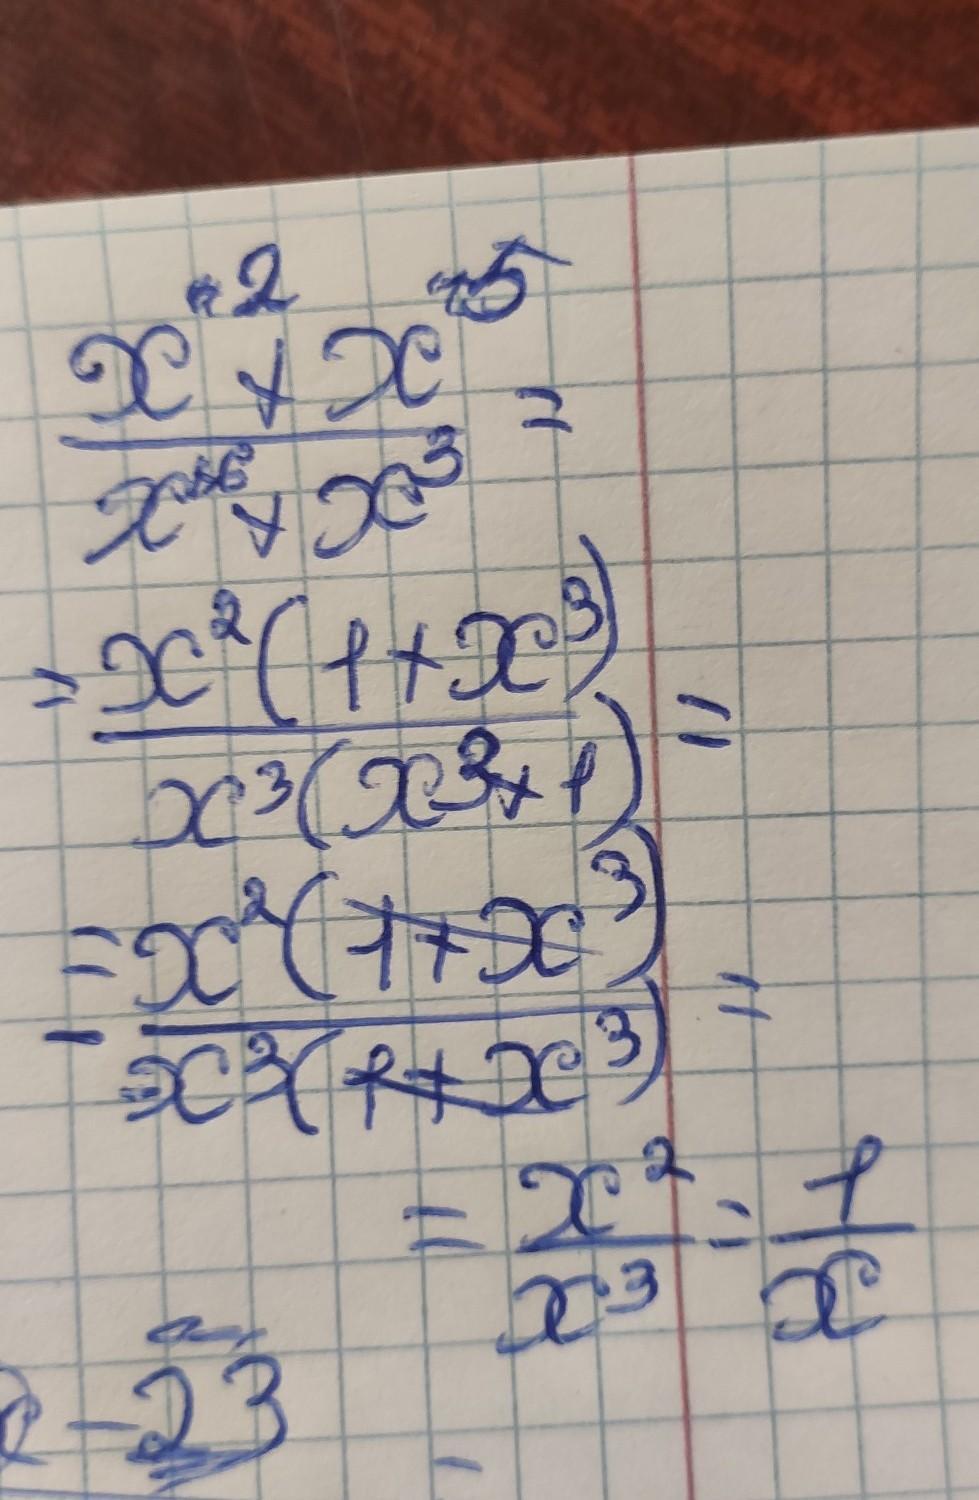 x² + x⁵ =
x⁶ + x³
= x²(1+x³) =
x³(x³+1)
= x²(1+x³) =
x³(1+x³)
= x² = 1
x³ x
- 23 -